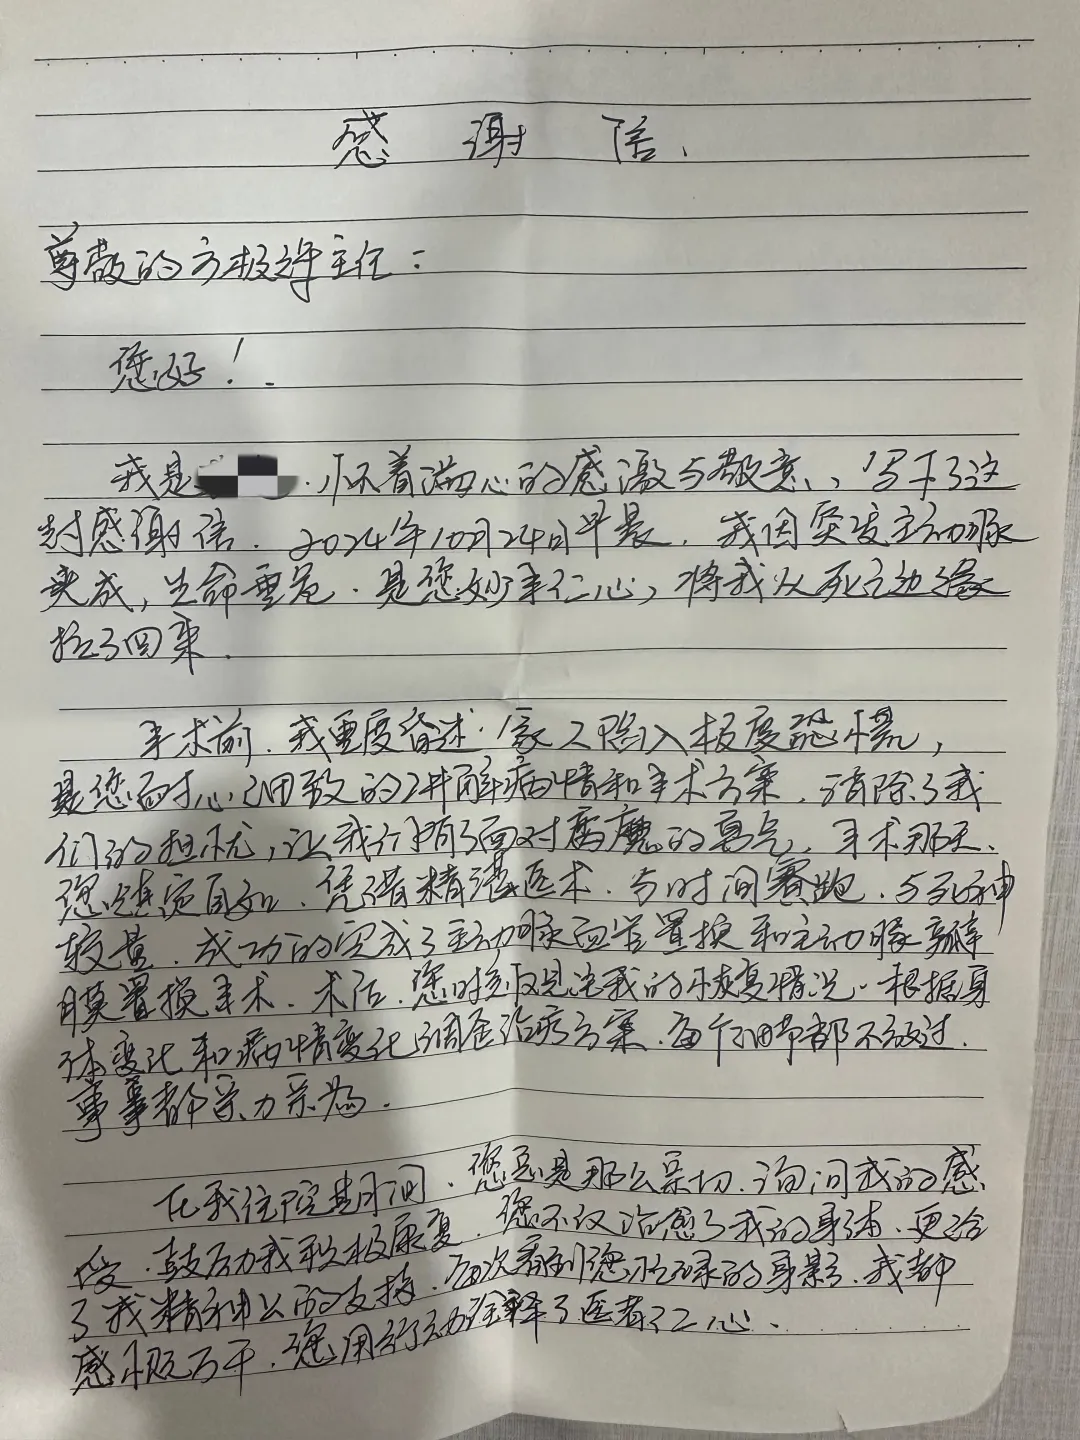 感谢信
尊敬的方极辉主任：
您好！
我是 怀着满心的感激与敬意、写下了这
封感谢信. 2024年10月24日早晨, 我因突发主动脉
夹成, 生命垂危. 是您妙手仁心, 将我从死亡边缘
拉了回来.
手术前, 我重度昏迷. 家人陷入极度恐慌,
是您耐心细致的讲解病情和手术方案, 消除了我
们的担忧, 让我们有了面对病魔的勇气, 手术那天、
您镇定自如, 凭借精湛医术, 与时间赛跑, 与死神
较量, 成功的完成了主动脉血管置换和主动脉瓣
膜置换手术. 术后, 您时刻关注我的恢复情况. 根据身
体变化和病情变化调整治疗方案, 每个细节都不放过.
事事都亲力亲为.
在我住院期间, 您总是那么亲切, 询问我的感
受, 鼓励我积极康复, 您不仅治愈了我的身体, 更给
了我精神上的支持, 每次看到您忙碌的身影, 我都
感慨万千, 您用行动诠释了医者仁心.